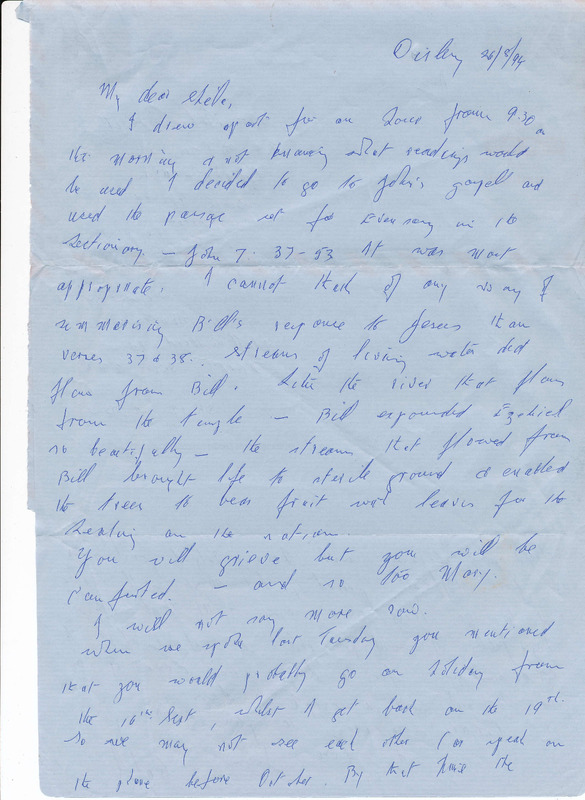 26/8/94
My dear Sheila,
I drew apart for an hour from 9.30 in
the morning & not knowing what readings would
be used I decided to go to John's gospel and
used the passage set for Evensong in the
Lectionary. – John 7. 37-53 It was most
appropriate. I cannot think of any way of
summarising Bill's response to Jesus than
verses 37 & 38. Streams of living water did
flow from Bill. Like the river that flows
from the temple – Bill expounded Ezekiel
so beautifully – the stream that flowed from
Bill brought life to sterile ground & enabled
the trees to bear fruit with leaves for the
healing on the nation.
You will grieve but you will be
comforted. – and so too Mary.
I will not say more now.
When we spoke last Tuesday you mentioned
that you would probably go on holiday from
the 16th Sept, whilst I get back on the 19th.
So we may not see each other (or speak on
the phone before October. By that time the